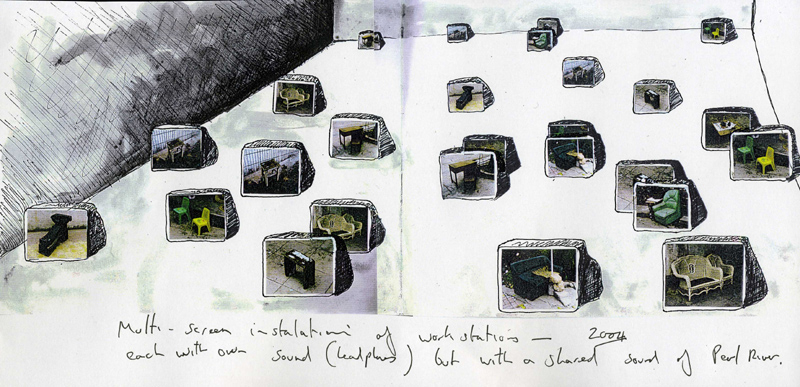 Multi-screen instalations of workstations — 2004
each with own sound (headphones) but with a shared sound of Pearl River.